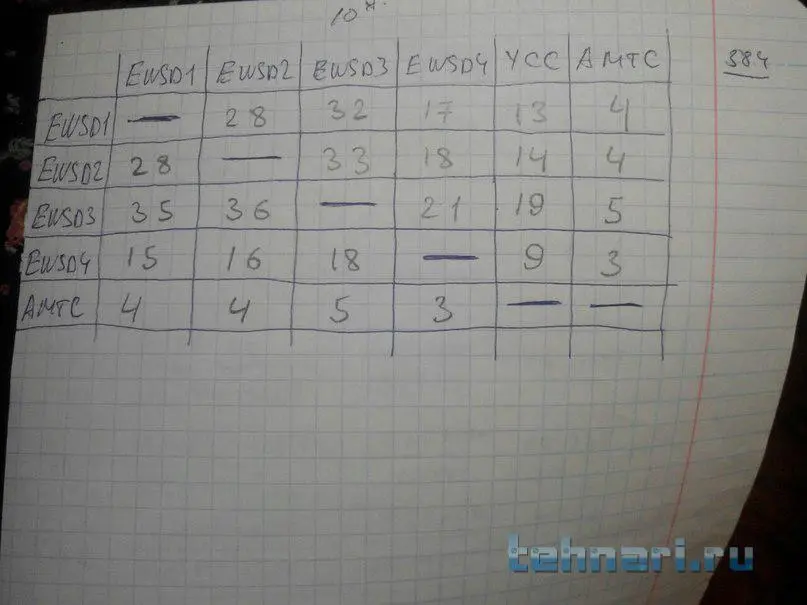 EWSD1 EWSD2 EWSD3 EWSD4 УСС АМТС 384
EWSD1 — 28 32 17 13 4
EWSD2 28 — 33 18 14 4
EWSD3 35 36 — 21 19 5
EWSD4 15 16 18 — 9 3
АМТС 4 4 5 3 — —
tehnari.ru